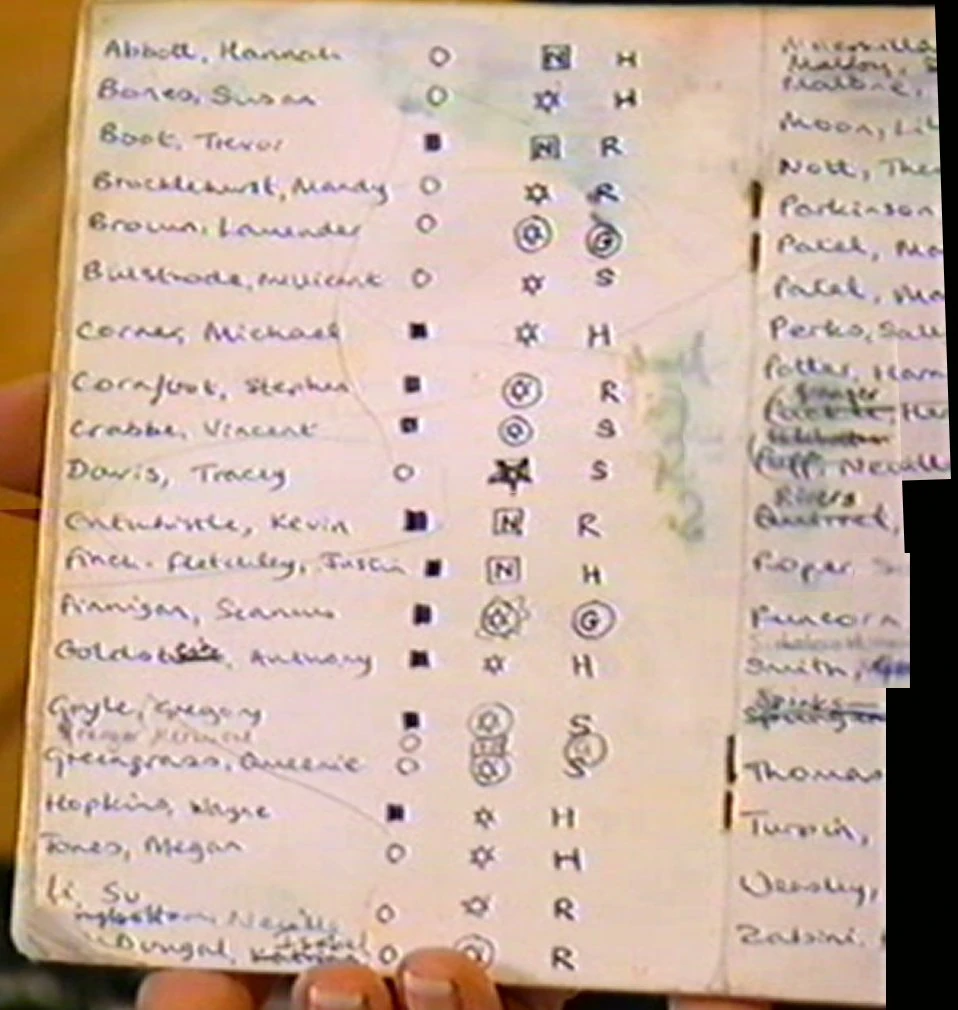 Abbott, Hannah N H
Bones, Susan H
Boot, Trevor N R
Brocklehurst, Mandy R
Brown, Lavender G
Bulstrode, Millicent S
Corner, Michael H
Cornfoot, Stephen R
Crabbe, Vincent S
Davis, Tracey S
Entwhistle, Kevin N R
Finch-Fletchley, Justin N H
Finnigan, Seamus G
Anthony H
Goyle, Gregory S
Greengrass, Queenie S
Hopkins, Wayne H
Jones, Megan H
Li, Su R
Neville
R
Malfoy,
Malone,
Moon, Li
Nott, The
Parkinson
Patel, Ma
Patel, Ma
Perks, Sall
Potter, Harr
Granger
Her
Puff, Nevill
Rivers
Roper, S
Runcorn
Smith,
Spinks
Thomas
Turpin,
Weasley,
Zabini,